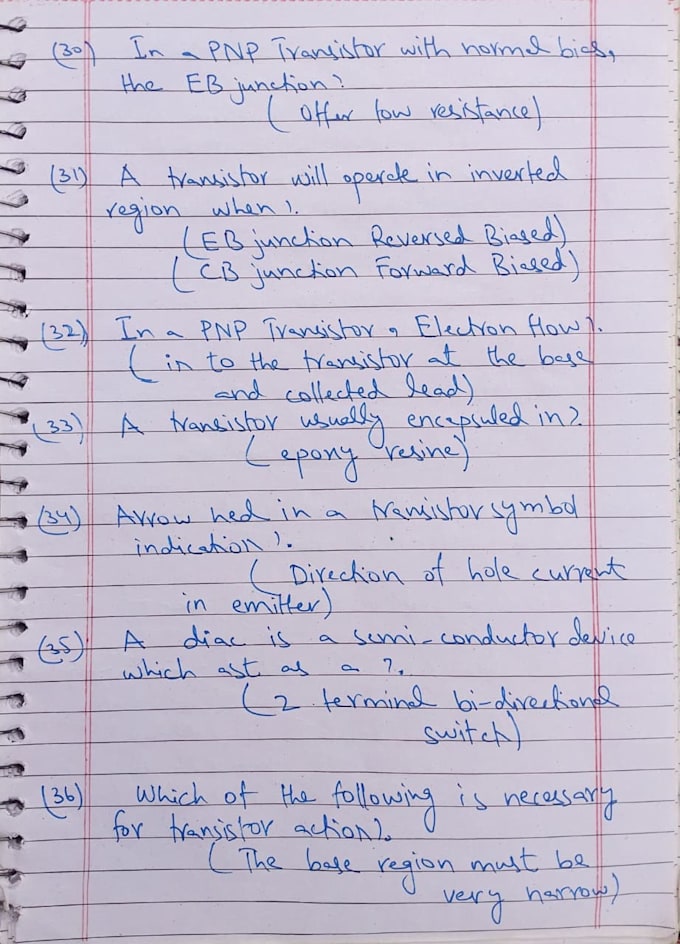 (30) In a PNP Transistor with normal bias,
the EB junction?
( Offer low resistance)
(31) A transistor will operate in inverted
region when?.
(EB junction Reversed Biased)
(CB junction Forward Biased)
(32) In a PNP Transistor, Electron flow?.
( in to the transistor at the base
and collected lead)
(33) A transistor usually encapsuled in?
(epony resine)
(34) Arrow hed in a transistor symbol
indication?.
( Direction of hole current
in emitter)
(35) A diac is a semi-conductor device
which ast as a ?.
(2 terminal bi-directional
switch)
(36) Which of the following is necessary
for transistor action?.
(The base region must be
very narrow)